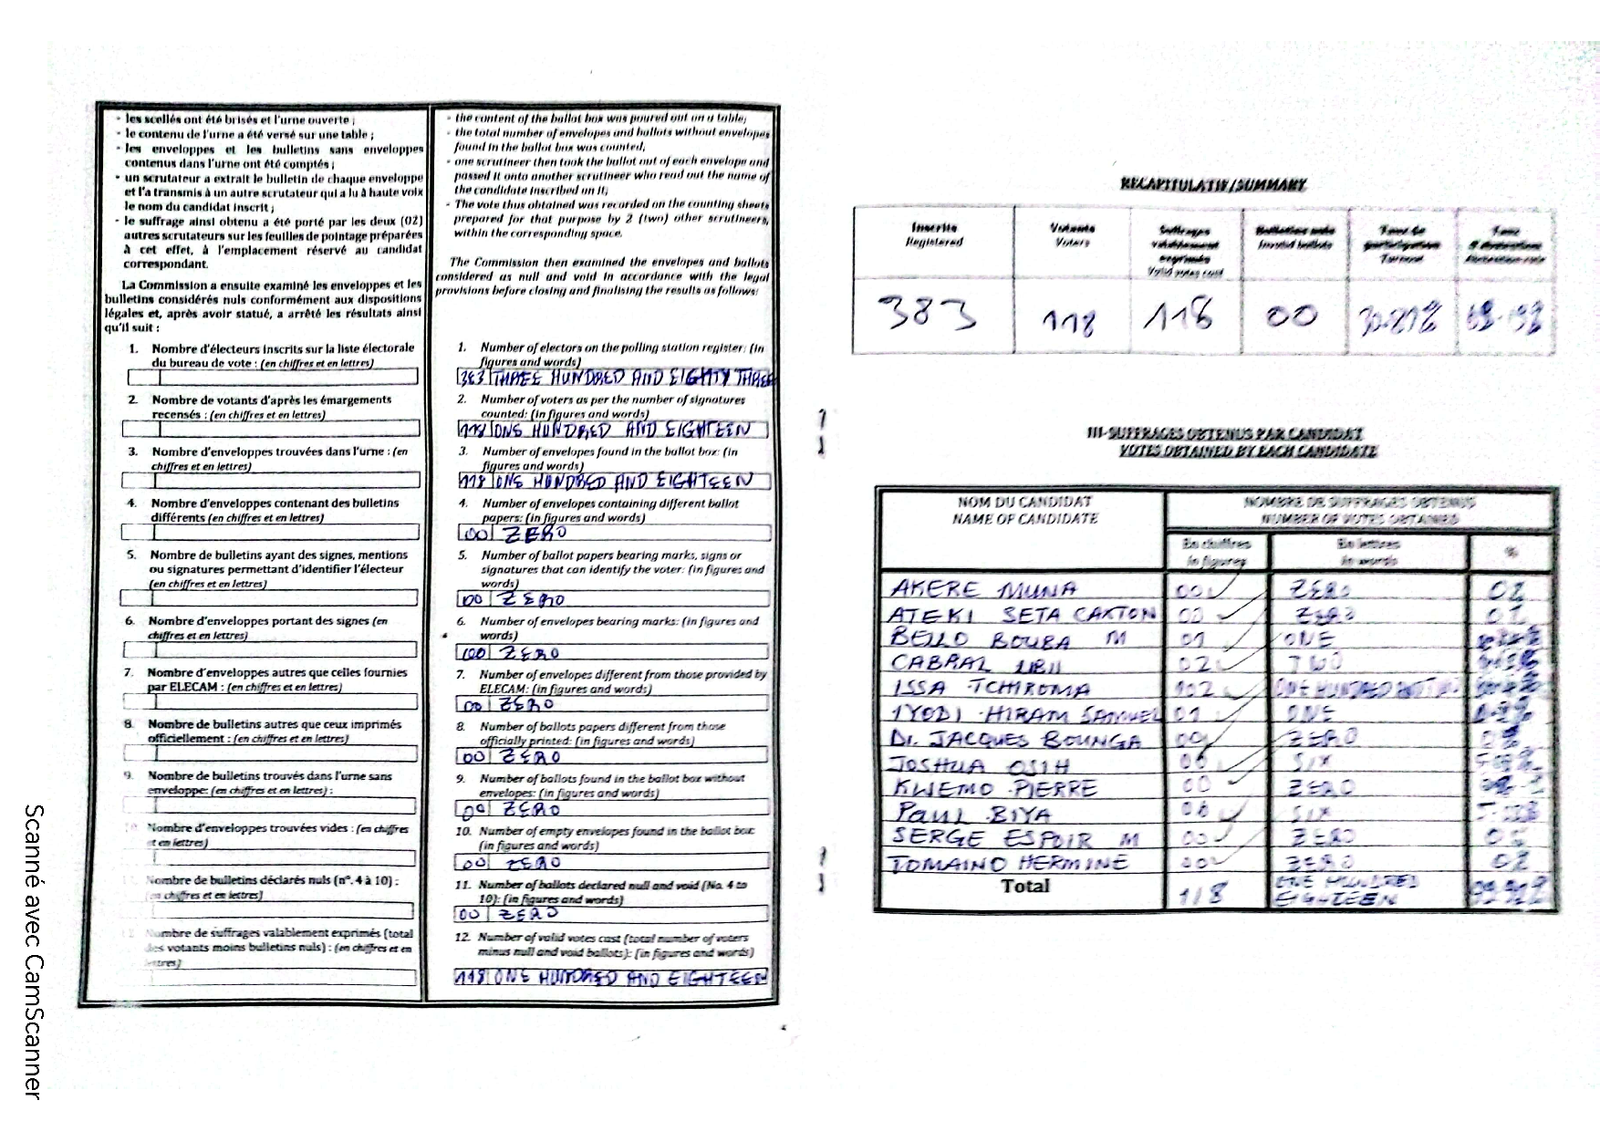 - les scellés ont été brisés et l'urne ouverte ;
- le contenu de l'urne a été versé sur une table ;
- les enveloppes et les bulletins sans enveloppes
contenus dans l'urne ont été comptés ;
- un scrutateur a extrait le bulletin de chaque enveloppe
et l'a transmis à un autre scrutateur qui a lu à haute voix
le nom du candidat inscrit ;
- le suffrage ainsi obtenu a été porté par les deux (02)
autres scrutateurs sur les feuilles de pointage préparées
à cet effet, à l'emplacement réservé au candidat
correspondant.
La Commission a ensuite examiné les enveloppes et les
bulletins considérés nuls conformément aux dispositions
légales et, après avoir statué, a arrêté les résultats ainsi
qu'il suit :
1. Nombre d'électeurs inscrits sur la liste électorale
du bureau de vote : (en chiffres et en lettres)
2. Nombre de votants d'après les émargements
recensés : (en chiffres et en lettres)
3. Nombre d'enveloppes trouvées dans l'urne : (en
chiffres et en lettres)
4. Nombre d'enveloppes contenant des bulletins
différents (en chiffres et en lettres)
5. Nombre de bulletins ayant des signes, mentions
ou signatures permettant d'identifier l'électeur
(en chiffres et en lettres)
6. Nombre d'enveloppes portant des signes (en
chiffres et en lettres)
7. Nombre d'enveloppes autres que celles fournies
par ELECAM : (en chiffres et en lettres)
8. Nombre de bulletins autres que ceux imprimés
officiellement : (en chiffres et en lettres)
9. Nombre de bulletins trouvés dans l'urne sans
enveloppe: (en chiffres et en lettres) :
Nombre d'enveloppes trouvées vides : (en chiffres
et en lettres)
Nombre de bulletins déclarés nuls (n°. 4 à 10) :
(en chiffres et en lettres)
Nombre de suffrages valablement exprimés (total
des votants moins bulletins nuls) : (en chiffres et en
lettres)
- the content of the ballot box was poured out on a table;
- the total number of envelopes and ballots without envelopes
found in the ballot box was counted;
- one scrutineer then took the ballot out of each envelope and
passed it onto another scrutineer who read out the name of
the candidate inscribed on it;
- The vote thus obtained was recorded on the counting sheets
prepared for that purpose by 2 (two) other scrutineers,
within the corresponding space.
The Commission then examined the envelopes and ballots
considered as null and void in accordance with the legal
provisions before closing and finalising the results as follows:
1. Number of electors on the polling station register: (in
figures and words)
383 THREE HUNDRED AND EIGHTY THREE
2. Number of voters as per the number of signatures
counted: (in figures and words)
118 ONE HUNDRED AND EIGHTEEN
3. Number of envelopes found in the ballot box: (in
figures and words)
118 ONE HUNDRED AND EIGHTEEN
4. Number of envelopes containing different ballot
papers: (in figures and words)
00 ZERO
5. Number of ballot papers bearing marks, signs or
signatures that can identify the voter: (in figures and
words)
00 ZERO
6. Number of envelopes bearing marks: (in figures and
words)
00 ZERO
7. Number of envelopes different from those provided by
ELECAM: (in figures and words)
00 ZERO
8. Number of ballots papers different from those
officially printed: (in figures and words)
00 ZERO
9. Number of ballots found in the ballot box without
envelopes: (in figures and words)
00 ZERO
10. Number of empty envelopes found in the ballot box:
(in figures and words)
00 ZERO
11. Number of ballots declared null and void (No. 4 to
10): (in figures and words)
00 ZERO
12. Number of valid votes cast (total number of voters
minus null and void ballots): (in figures and words)
118 ONE HUNDRED AND EIGHTEEN
RECAPITULATIF/SUMMARY
Inscrits Registered
Votants Voters
Suffrages valablement exprimés Valid votes cast
Bulletins nuls Invalid ballots
Taux de participation Turnout
383 118 118 00
III-SUFFRAGES OBTENUS PAR CANDIDAT
VOTES OBTAINED BY EACH CANDIDATE
NOM DU CANDIDAT NOMBRE DE SUFFRAGES OBTENUS
NAME OF CANDIDATE NUMBER OF VOTES OBTAINED
En chiffres En lettres %
in figures in words
AKERE MUNA 00 ZERO
ATEKI SETA CAXTON 00 ZERO
BELLO BOUBA M 01 ONE
CABRAL LIBII 02 TWO
ISSA TCHIROMA 102 ONE HUNDRED
IYODI HIRAM SAMUEL 01 ONE
Dr. JACQUES BOUNGA 00 ZERO
JOSHUA OSIH 06 SIX
KWEMO PIERRE 00 ZERO
PAUL BIYA 06 SIX
SERGE ESPOIR M 00 ZERO
TOMAINO HERMINE 00 ZERO
Total 118 ONE HUNDRED
EIGHTEEN
Scanné avec CamScanner